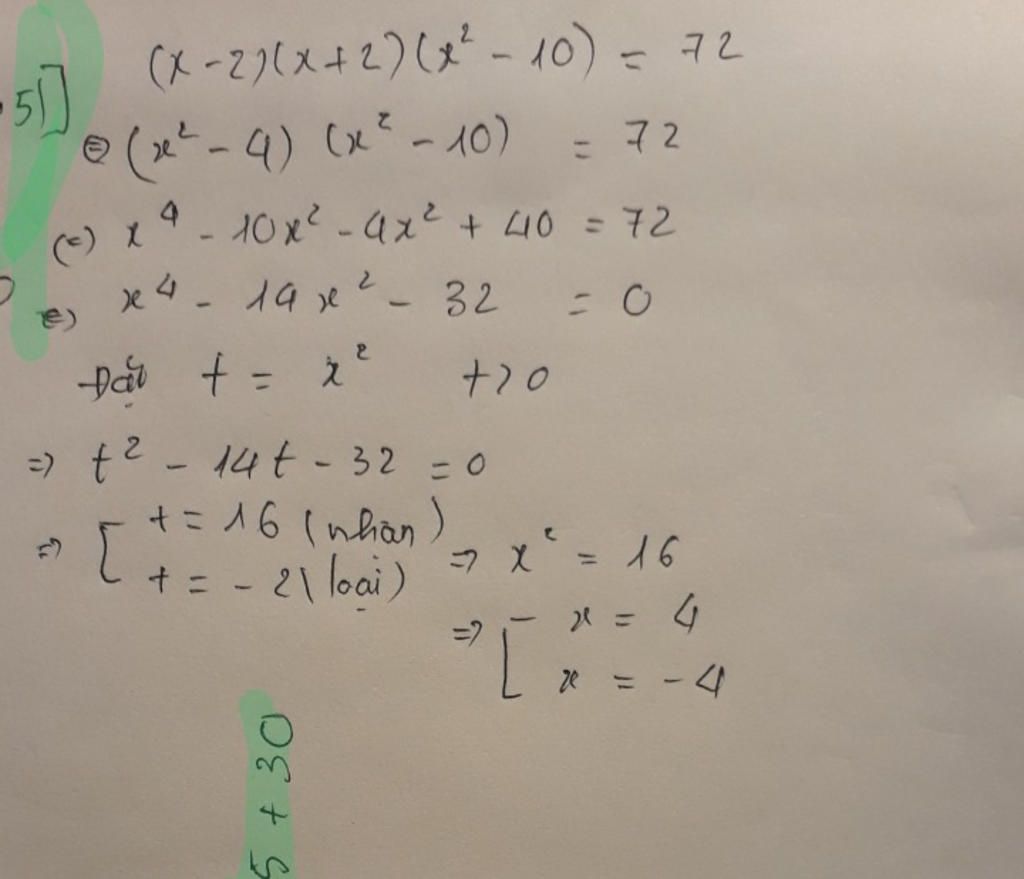 51]
(x-2)(x+2)(x² - 10) = 72
⇔ (x² - 4) (x² - 10) = 72
(=) x⁴ - 10x² - 4x² + 40 = 72
⇔ x⁴ - 14x² - 32 = 0
Đặt t = x² t>0
=> t² - 14t - 32 = 0
=> [ t = 16 (nhận)
t = -2 (loại) => x² = 16
=> [ x = 4
x = -4
5 + 30